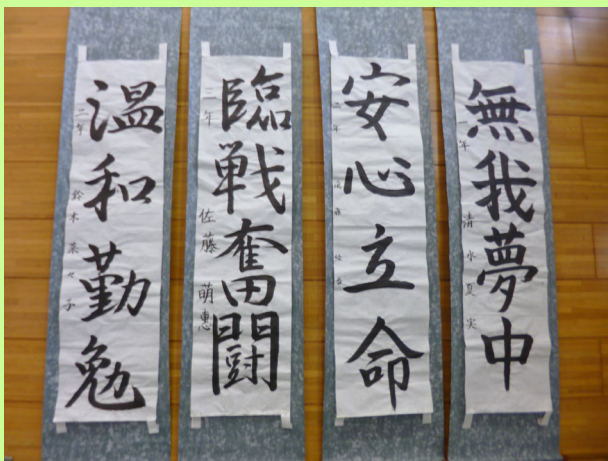 無我夢中
一年 清水夏実
安心立命
二年
臨戦奮闘
三年 佐藤萌恵
温和勤勉
三年 鈴木菜々子